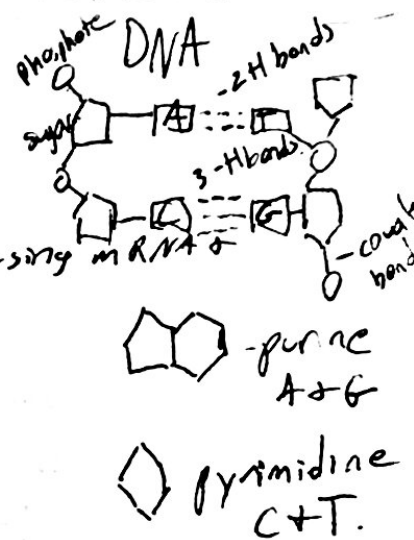 phosphate
DNA
-2 H bonds
sugar
A
T
3-H bonds
C
G
-sing mRNA +
- coval
bond
-purine
A + G
pyrimidine
C + T.